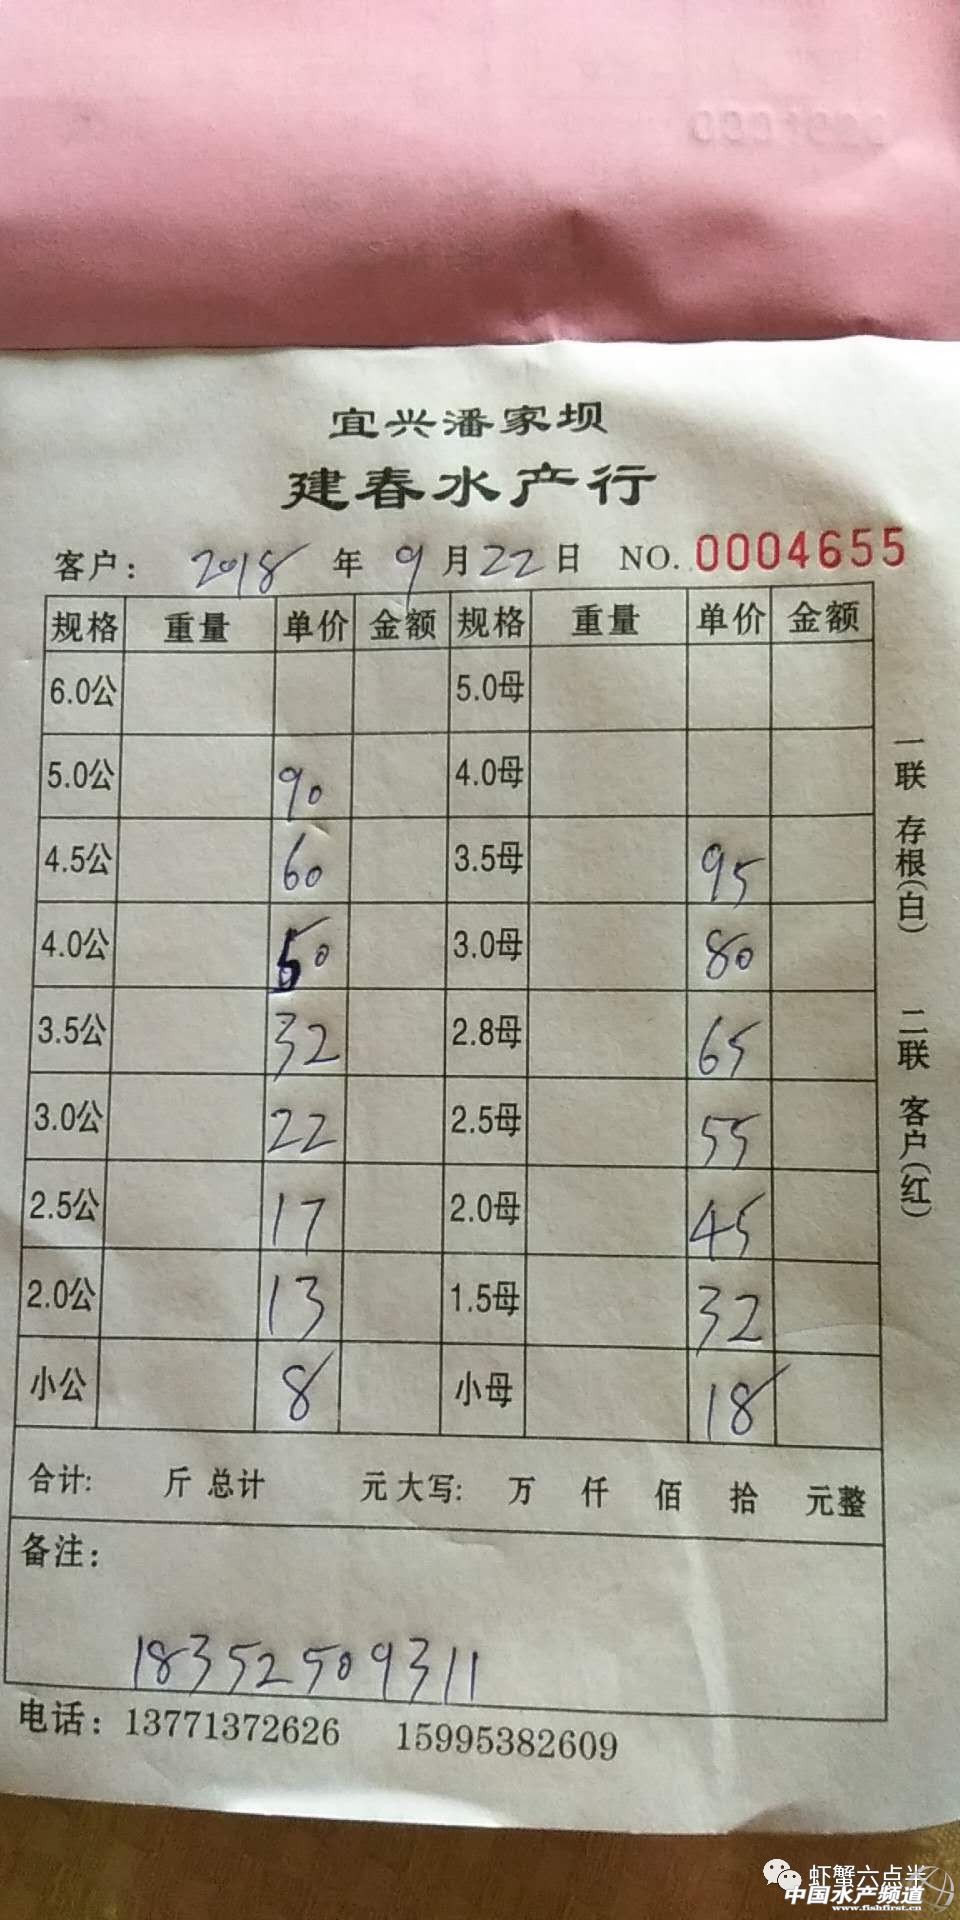 宜兴潘家坝
建春水产行
客户: 2018 年 9 月 22 日 NO. 0004655
规格 重量 单价 金额 规格 重量 单价 金额
6.0公 5.0母
5.0公 90 4.0母
4.5公 60 3.5母 95
4.0公 50 3.0母 80
3.5公 32 2.8母 65
3.0公 22 2.5母 55
2.5公 17 2.0母 45
2.0公 13 1.5母 32
小公 8 小母 18
合计: 斤 总计 元 大写: 万 仟 佰 拾 元整
备注:
18352509311
电话: 13771372626 15995382609
一联 存根(白) 二联 客户(红)
虾蟹六点半
中国水产频道
www.fishfirst.cn